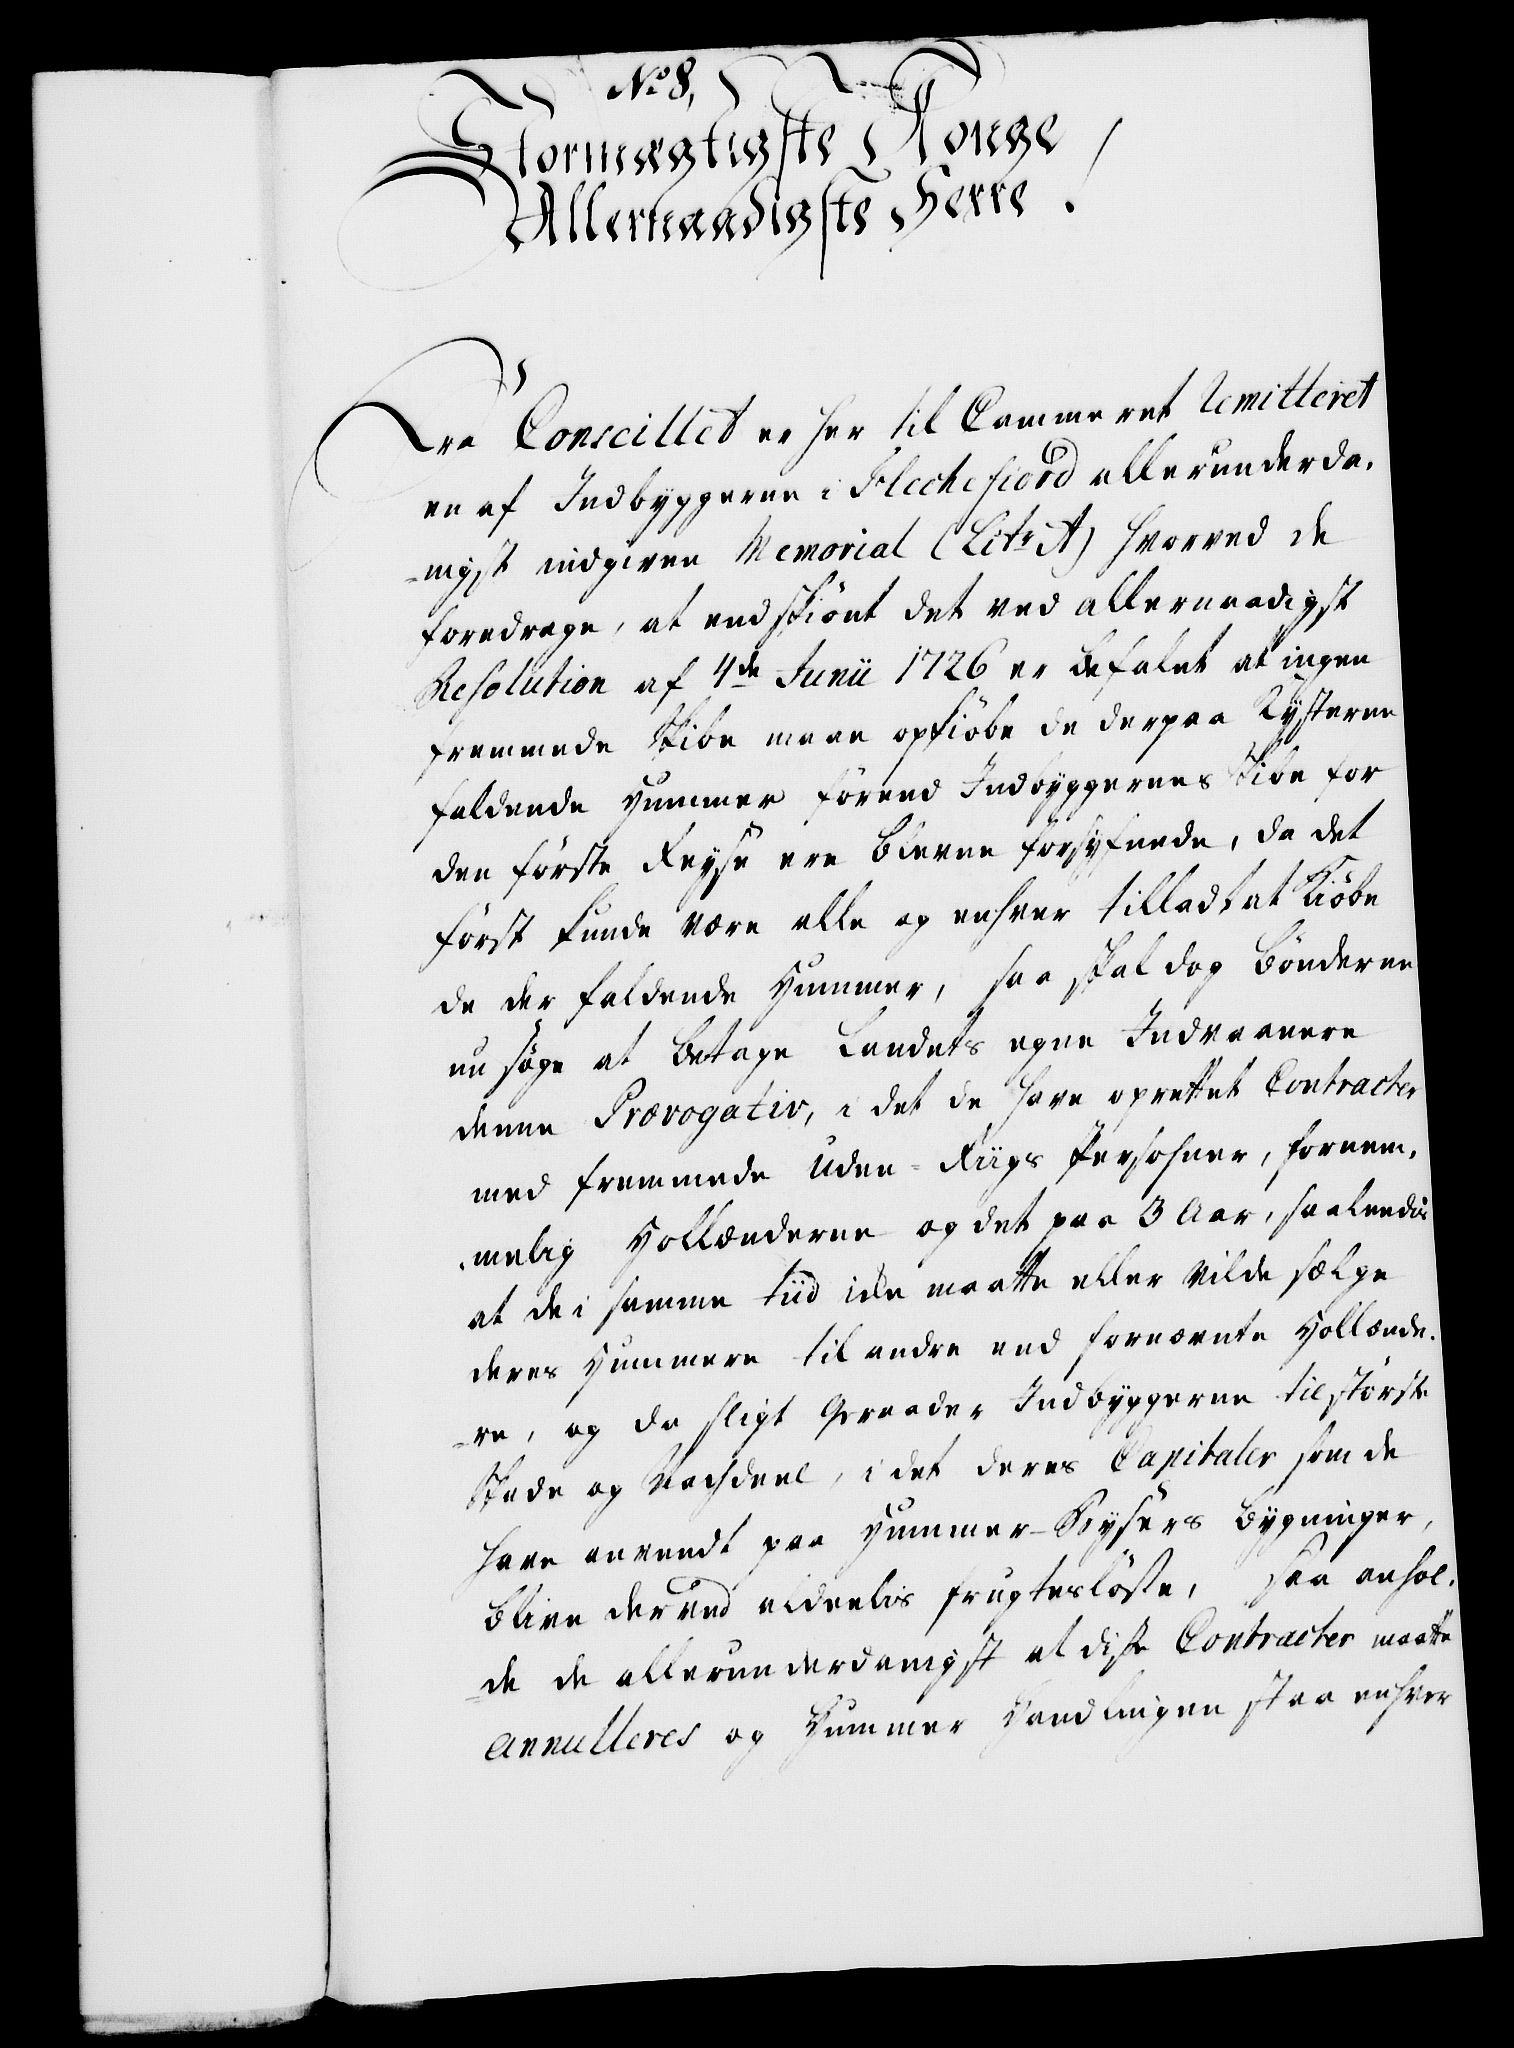 No 8,
Stormægtigste Konge
Allernaadigste Herre!
Fra Conseillet er her til Cammeret Remitteret
en af Indbyggerne i Flechefiord allerunderda-
-nigst indgiven Memorial (Litr A) hvorved de
foredrage, at endskiönt det ved allernaadigst
Resolution af 4de Junii 1726 er befalet at ingen
fremmede Skibe maae opkiöbe de derpaa Kÿsterne
faldende Hummer förend Indbyggernes Skibe for
den förste Reyse ere blevne forsyfnede, da det
först kunde være alle og enhver tilladt at Kiöbe
de der faldende Hummer, saa skal dog bönderne
nu söge at betage Landets egne Indvaanere
denne Prærogativ, i det de have oprettet Contracter
med fremmede Uden-Riigs Persohner, fornem-
-melig Hollænderne og det paa 3 Aar, saaledis
at de i samme tiid icke maatte eller vilde sælge
deres Hummere til andre end fornævnte Hollænde-
-re, og da sligt Geraader Indbyggerne til störste
Skade og Nachdeel, i det deres Capitaler som de
have anvendt paa Hummer-Reysers bygninger,
blive derved aldeelis frugteslöse, saa anhol-
-de de allerunderdanigst at disse Contracter maatte
annulleres og Hummer Handlingen staa enhver